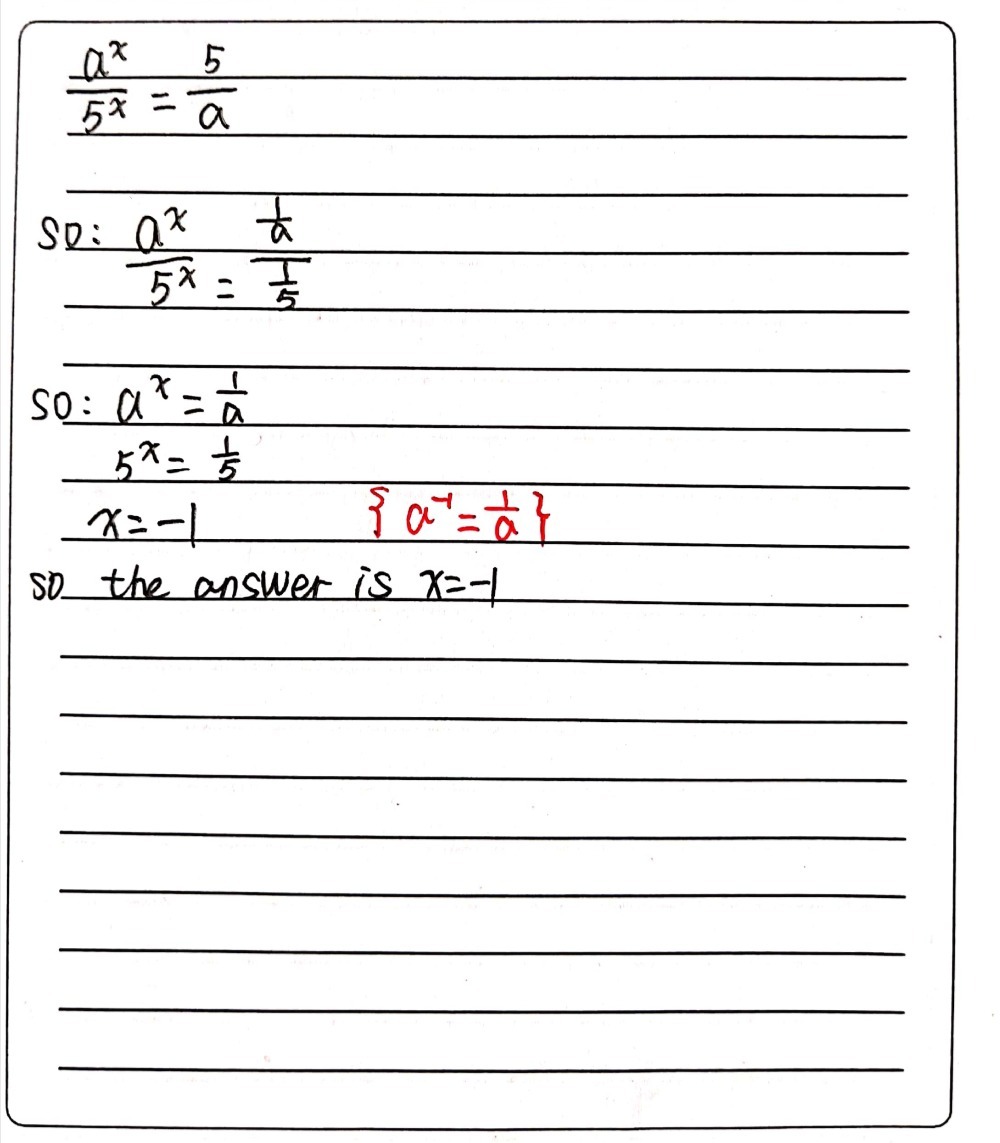 a^x/5^x = 5/a
so: a^x/5^x = (1/a)/(1/5)
so: a^x = 1/a
5^x = 1/5
x = -1 {a^-1 = 1/a}
so the answer is x=-1